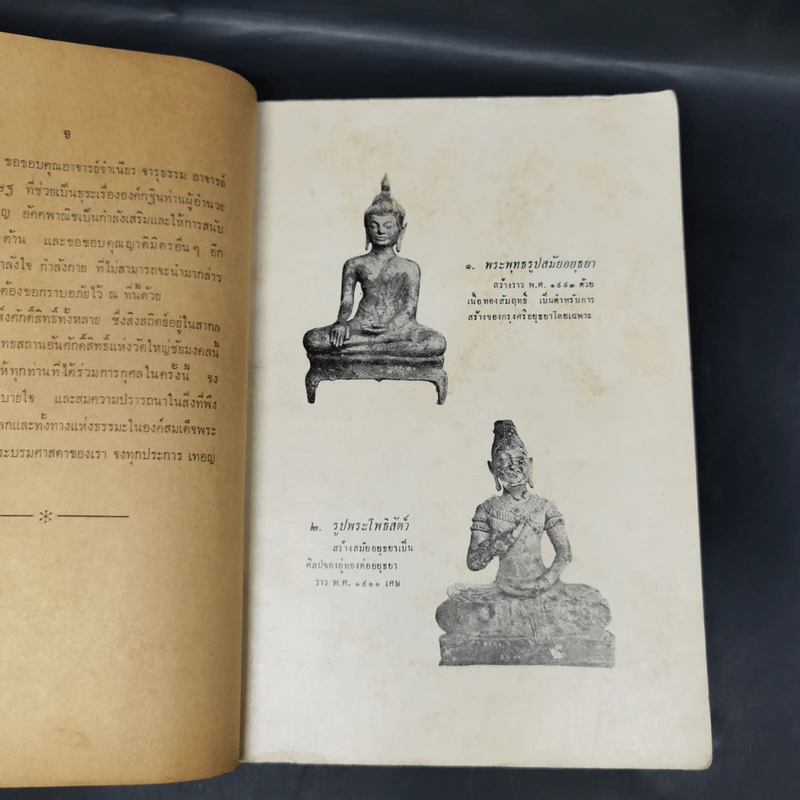 จ
ขอขอบคุณอาจารย์จำเนียร จารุธรรม อาจารย์
ที่ช่วยเป็นธุระเรื่ององค์กฐินท่านผู้อำนวย
อัคคพาณิชเป็นกำลังเสริมและให้การสนับ
ด้าน และขอขอบคุณญาติมิตรอื่นๆ อีก
กำลังกาย ที่ไม่สามารถจะนำมากล่าว
ต้องขอกราบอภัยไว้ ณ ที่นี้ด้วย
สิ่งศักดิ์สิทธิ์ทั้งหลาย ซึ่งสิงสถิตย์อยู่ในสากล
ทธสถานอันศักดิ์สิทธิ์แห่งวัดใหญ่ชัยมงคลนี้
ห้ทุกท่านที่ได้ร่วมการกุศลในครั้งนี้ จง
บายใจ และสมความปรารถนาในสิ่งที่พึง
ลกและทั้งทางแห่งธรรมะในองค์สมเด็จพระ
ระบรมศาสดาของเรา จงทุกประการ เทอญ
๑. พระพุทธรูปสมัยอยุธยา
สร้างราว พ.ศ. ๑๙๙๓ ด้วย
เนื้อทองสัมฤทธิ์ เป็นตำหรับการ
สร้างของกรุงศรีอยุธยาโดยเฉพาะ
๒. รูปพระโพธิสัตว์
สร้างสมัยอยุธยาเป็น
ศิลปของอู่ทองต่ออยุธยา
ราว พ.ศ. ๑๙๐๐ เศษ